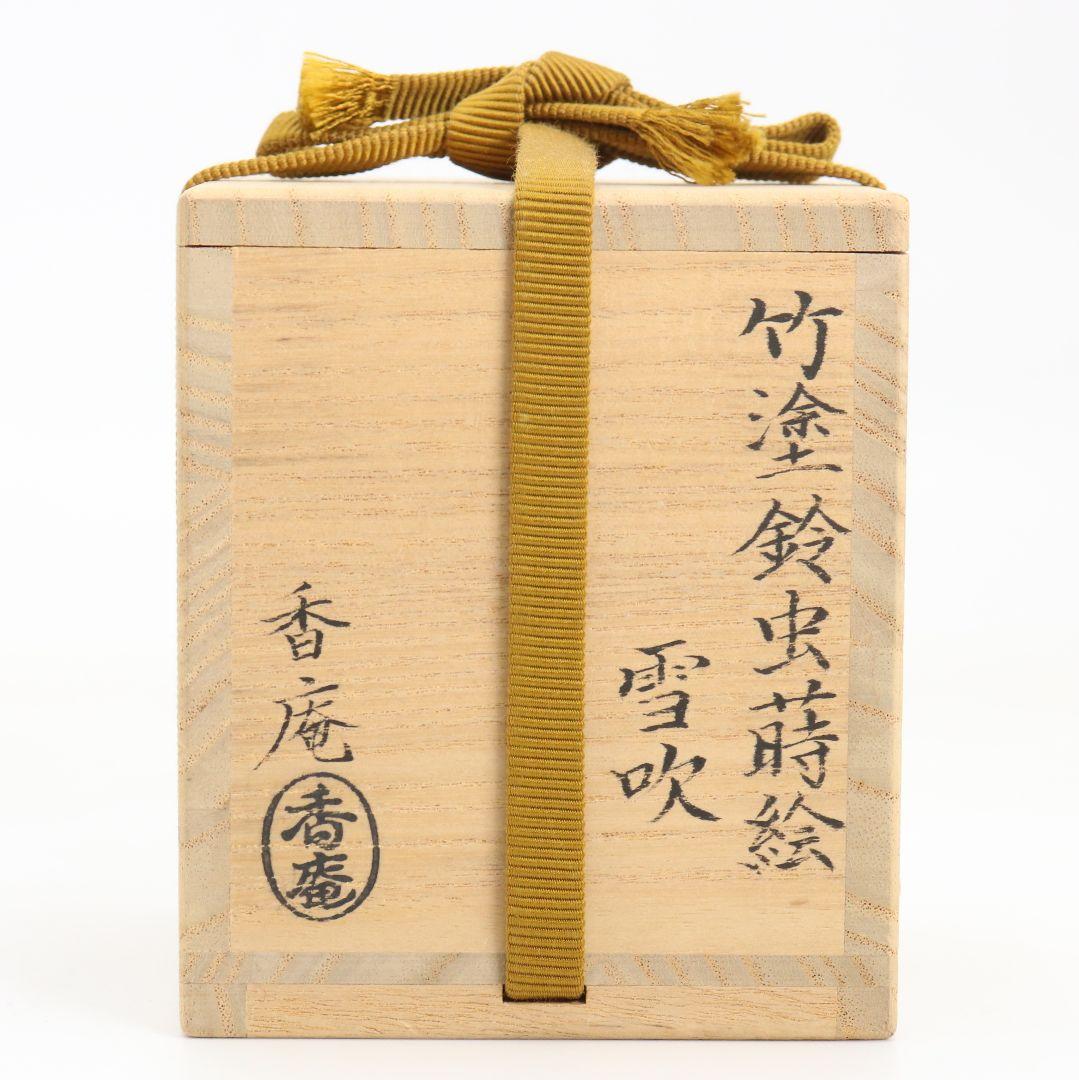 竹塗鈴虫蒔絵
雪吹
香庵
香庵